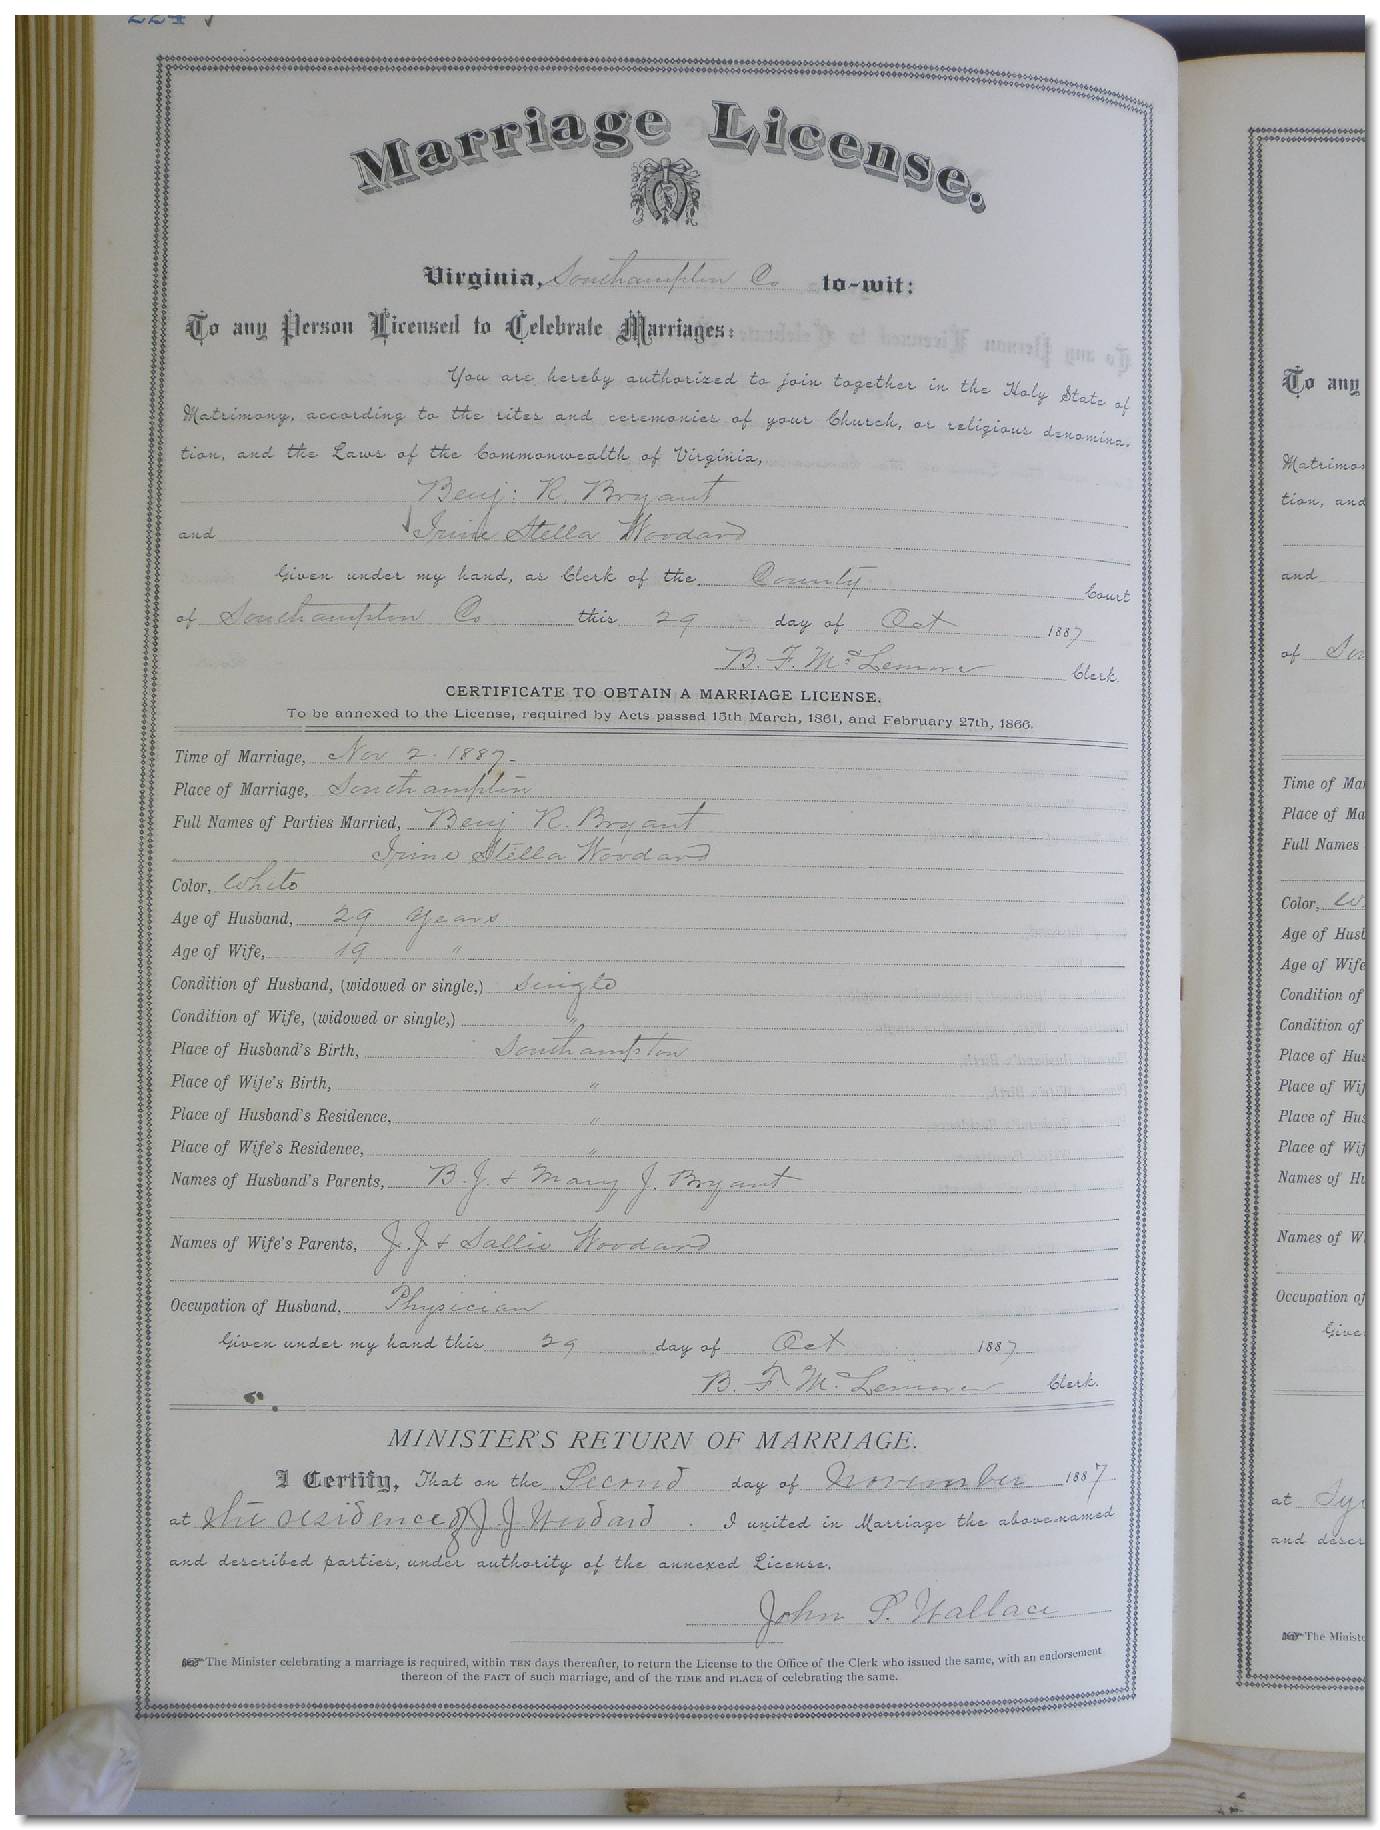 224
Marriage License.
Virginia, Southampton Co to-wit:
To any Person Licensed to Celebrate Marriages:
You are hereby authorized to join together in the Holy State of
Matrimony, according to the rites and ceremonies of your Church, or religious denomina-
tion, and the Laws of the Commonwealth of Virginia,
Benj: R. Bryant
and Irine Stella Woodard
Given under my hand, as Clerk of the County Court
of Southampton Co this 29 day of Oct 1887
B. F. McLemore Clerk.
CERTIFICATE TO OBTAIN A MARRIAGE LICENSE.
To be annexed to the License, required by Acts passed 15th March, 1861, and February 27th, 1866.
Time of Marriage, Nov 2. 1887.
Place of Marriage, Southampton
Full Names of Parties Married, Benj R. Bryant
Irine Stella Woodard
Color, White
Age of Husband, 29 years
Age of Wife, 19 "
Condition of Husband, (widowed or single,) Single
Condition of Wife, (widowed or single,) "
Place of Husband's Birth, Southampton
Place of Wife's Birth, "
Place of Husband's Residence, "
Place of Wife's Residence, "
Names of Husband's Parents, B. J. & Mary J. Bryant
Names of Wife's Parents, J. J. & Sallie Woodard
Occupation of Husband, Physician
Given under my hand this 29 day of Oct 1887
B. F. McLemore Clerk.
MINISTER'S RETURN OF MARRIAGE.
I Certify, That on the Second day of November 1887
at the residence of J. J. Woodard. I united in Marriage the above-named
and described parties, under authority of the annexed License.
John S. Wallace
The Minister celebrating a marriage is required, within TEN days thereafter, to return the License to the Office of the Clerk who issued the same, with an endorsement
thereon of the FACT of such marriage, and of the TIME and PLACE of celebrating the same.
To any
Matrimo
tion, and
and
of
Time of Ma
Place of Ma
Full Names
Color,
Age of Husb
Age of Wife
Condition of
Condition of
Place of Hus
Place of Wif
Place of Hus
Place of Wif
Names of Hu
Names of W
Occupation of
Give
at
and descr
The Ministe